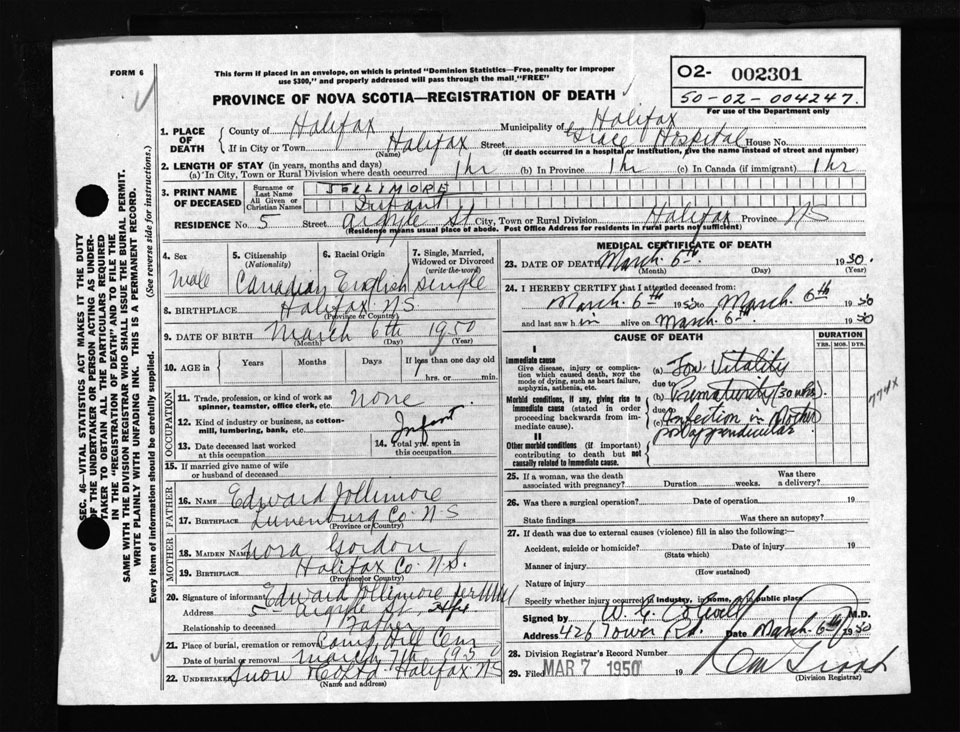 FORM 6
This form if placed in an envelope, on which is printed "Dominion Statistics—Free, penalty for improper
use $300," and properly addressed will pass through the mail "FREE"
02- 002301
50-02-004247.
For use of the Department only
PROVINCE OF NOVA SCOTIA—REGISTRATION OF DEATH
1. PLACE OF DEATH
County of Halifax Municipality of Halifax
If in City or Town Halifax Street Grace Hospital House No.
(Name) (If death occurred in a hospital or institution, give the name instead of street and number)
2. LENGTH OF STAY (in years, months and days)
(a) In City, Town or Rural Division where death occurred 1 hr (b) In Province 1 hr (c) In Canada (if immigrant) 1 hr
3. PRINT NAME OF DECEASED
Surname or Last Name JOLLIMORE
All Given or Christian Names Infant
RESIDENCE No. 5 Street Argyle St City, Town or Rural Division Halifax Province NS
(Residence means usual place of abode. Post Office Address for residents in rural parts not sufficient)
4. Sex
Male
5. Citizenship (Nationality)
Canadian
6. Racial Origin
English
7. Single, Married, Widowed or Divorced (write the word)
Single
8. BIRTHPLACE Halifax NS
(Province or Country)
9. DATE OF BIRTH March 6th 1950
(Month) (Day) (Year)
10. AGE in Years Months Days If less than one day old
1 hrs. or min.
OCCUPATION
11. Trade, profession, or kind of work as spinner, teamster, office clerk, etc. None
12. Kind of industry or business, as cotton-mill, lumbering, bank, etc. Infant
13. Date deceased last worked at this occupation
14. Total yrs. spent in this occupation
15. If married give name of wife or husband of deceased
FATHER
16. NAME Edward Jollimore
17. BIRTHPLACE Lunenburg Co. N.S
(Province or Country)
MOTHER
18. MAIDEN NAME Nora Gordon
19. BIRTHPLACE Halifax Co. N.S.
(Province or Country)
20. Signature of informant Edward Jollimore per
Address 5 Argyle St, Hfx
Relationship to deceased Father
21. Place of burial, cremation or removal Camp Hill Cem
Date of burial or removal March 7th 1950
22. UNDERTAKER Snow Halifax NS
(Name and address)
MEDICAL CERTIFICATE OF DEATH
23. DATE OF DEATH March 6th. 1950.
(Month) (Day) (Year)
24. I HEREBY CERTIFY that I attended deceased from:
March. 6th 1950 to March. 6th 1950
and last saw h im alive on March. 6th. 1950
CAUSE OF DEATH
DURATION
YRS. MOS. DYS.
I
Immediate cause
Give disease, injury or complication which caused death, not the mode of dying, such as heart failure, asphyxia, asthenia, etc.
(a) Low Vitality
due to
Morbid conditions, if any, giving rise to immediate cause (stated in order proceeding backwards from immediate cause).
(b) Prematurity (30 wks)
due to
(c) Infection in Mother
post appendicular
II
Other morbid conditions (if important) contributing to death but not causally related to immediate cause.
774X
25. If a woman, was the death associated with pregnancy? Duration weeks. Was there a delivery?
26. Was there a surgical operation? Date of operation 19
State findings Was there an autopsy?
27. If death was due to external causes (violence) fill in also the following:—
Accident, suicide or homicide? Date of injury 19
(State which)
Manner of injury
(How sustained)
Nature of injury
Specify whether injury occurred in industry, in home, or in public place
Signed by W. G. Colwell M.D.
Address 426 Tower Rd. Date March. 6th 1950
28. Division Registrar's Record Number
29. Filed MAR 7 1950 19
(Division Registrar)
SEC. 46—VITAL STATISTICS ACT MAKES IT THE DUTY
OF THE UNDERTAKER OR PERSON ACTING AS UNDERTAKER TO OBTAIN ALL THE PARTICULARS REQUIRED
IN THE "REGISTRATION OF DEATH" AND TO FILE THE
SAME WITH THE DIVISION REGISTRAR WHO SHALL ISSUE THE BURIAL PERMIT.
WRITE PLAINLY WITH UNFADING INK. THIS IS A PERMANENT RECORD.
Every item of information should be carefully supplied. (See reverse side for instructions.)